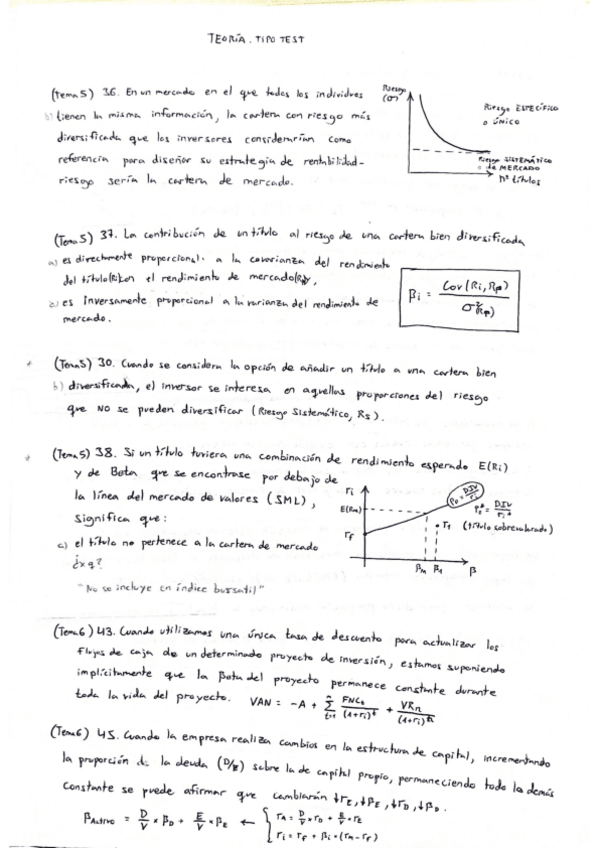 TEORÍA. TIPO TEST
(Tema 5) 36. En un mercado en el que todos los individuos
b) tienen la misma información, la cartera con riesgo más
diversificada que los inversores considerarían como
referencia para diseñar su estrategia de rentabilidad-
riesgo sería la cartera de mercado.
Riesgo
(σ)
Riesgo ESPECÍFICO
o ÚNICO
Riesgo SISTEMÁTICO
o de MERCADO
Nº títulos
(Tema 5) 37. La contribución de un título al riesgo de una cartera bien diversificada
a) es directamente proporcional a la covarianza del rendimiento
del título (Ri) con el rendimiento de mercado
es inversamente proporcional a la varianza del rendimiento de
mercado.
βi = Cov(Ri, Rp) / σ²(Rp)
* (Tema 5) 30. Cuando se considera la opción de añadir un título a una cartera bien
b) diversificada, el inversor se interesa en aquellas proporciones del riesgo
que NO se pueden diversificar (Riesgo Sistemático, Rs).
* (Tema 5) 38. Si un título tuviera una combinación de rendimiento esperado E(Ri)
y de Beta que se encontrase por debajo de
la línea del mercado de valores (SML),
significa que:
c) el título no pertenece a la cartera de mercado
¿x q?
"No se incluye en índice bursatil"
ri
E(Rm)
rf
T1 (título sobrevalorado)
βm β1 β
(Tema 6) 43. Cuando utilizamos una única tasa de descuento para actualizar los
flujos de caja de un determinado proyecto de inversión, estamos suponiendo
implícitamente que la Beta del proyecto permanece constante durante
toda la vida del proyecto. VAN = -A + Σ FNCt / (1+ri)^t + VRn / (1+ri)^n
(Tema 6) 45. Cuando la empresa realiza cambios en la estructura de capital, incrementando
la proporción de la deuda (D/E) sobre la de capital propio, permaneciendo todo lo demás
constante se puede afirmar que cambiarán ↓rE, ↓βE, ↓rD, ↓βD.
βActivo = D/V × βD + E/V × βE ← { rA = D/V × rD + E/V × rE
ri = rf + βi × (rm - rf)